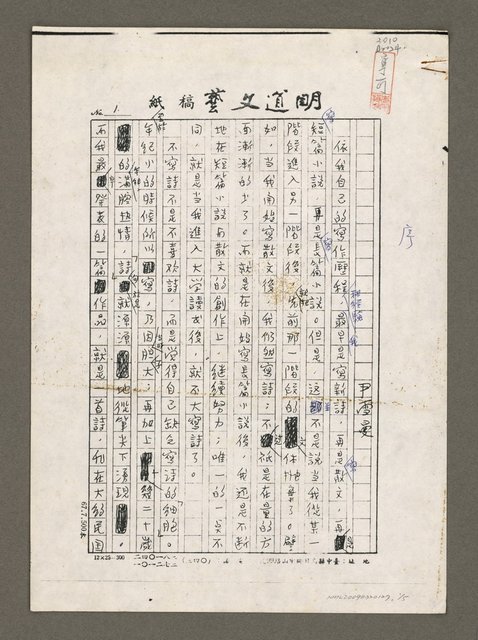 2010
明道文藝稿紙
No. 1
序
尹雪曼
依我自己的寫作歷程,最早是寫新詩,再是散文,再是
短篇小說,再是長篇小說。但是,這不是說當我從某一
階段進入另一階段後,先前那一階段的文體就拋棄了。譬
如,當我開始寫散文後,我仍然寫詩;不過,祇是在量的方
面漸漸的少了。而就是在開始寫長篇小說後,我還是不斷
地在短篇小說與散文的創作上,繼續努力;唯一的一點不
同,就是當我進入大學讀書後,就不大寫詩了。
不寫詩不是不喜歡詩,而是覺得自己缺乏寫詩的細胞。
年紀小的時候所以寫,乃因膽大;再加上幾二十歲
的滿腔熱情,詩句就滾滾地從筆尖下湧現。
而我最早發表的一篇作品,就是一首詩,刊在大的民國
12×25=300